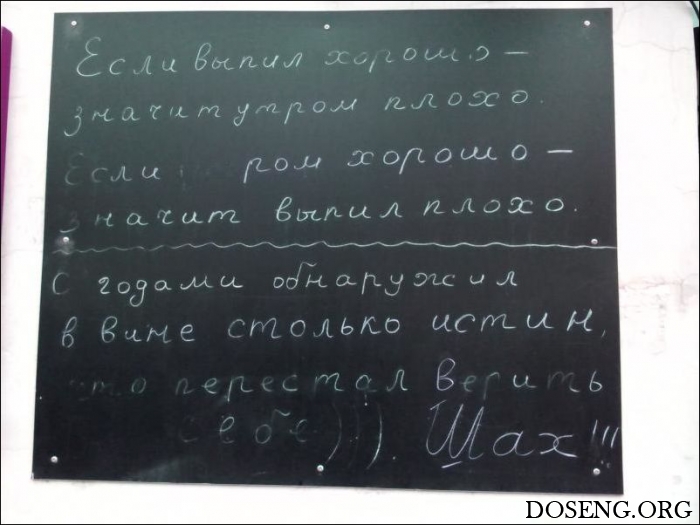 Если выпил хорошо —
значит утром плохо.
Если ром хорошо —
значит выпил плохо.
С годами обнаружил
в вине столько истин,
что перестал верить
себе))). Шах!!!
DOSENG.ORG